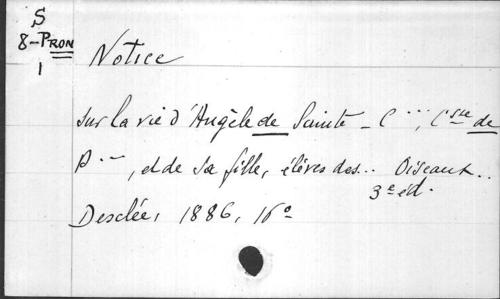 S
8-PRON
1
Notice
sur la vie d'Angèle de Sainte-C..., Csse de
P..., et de sa fille, élèves des.. Oiseaux..
3e éd.
Desclée, 1886, 16º